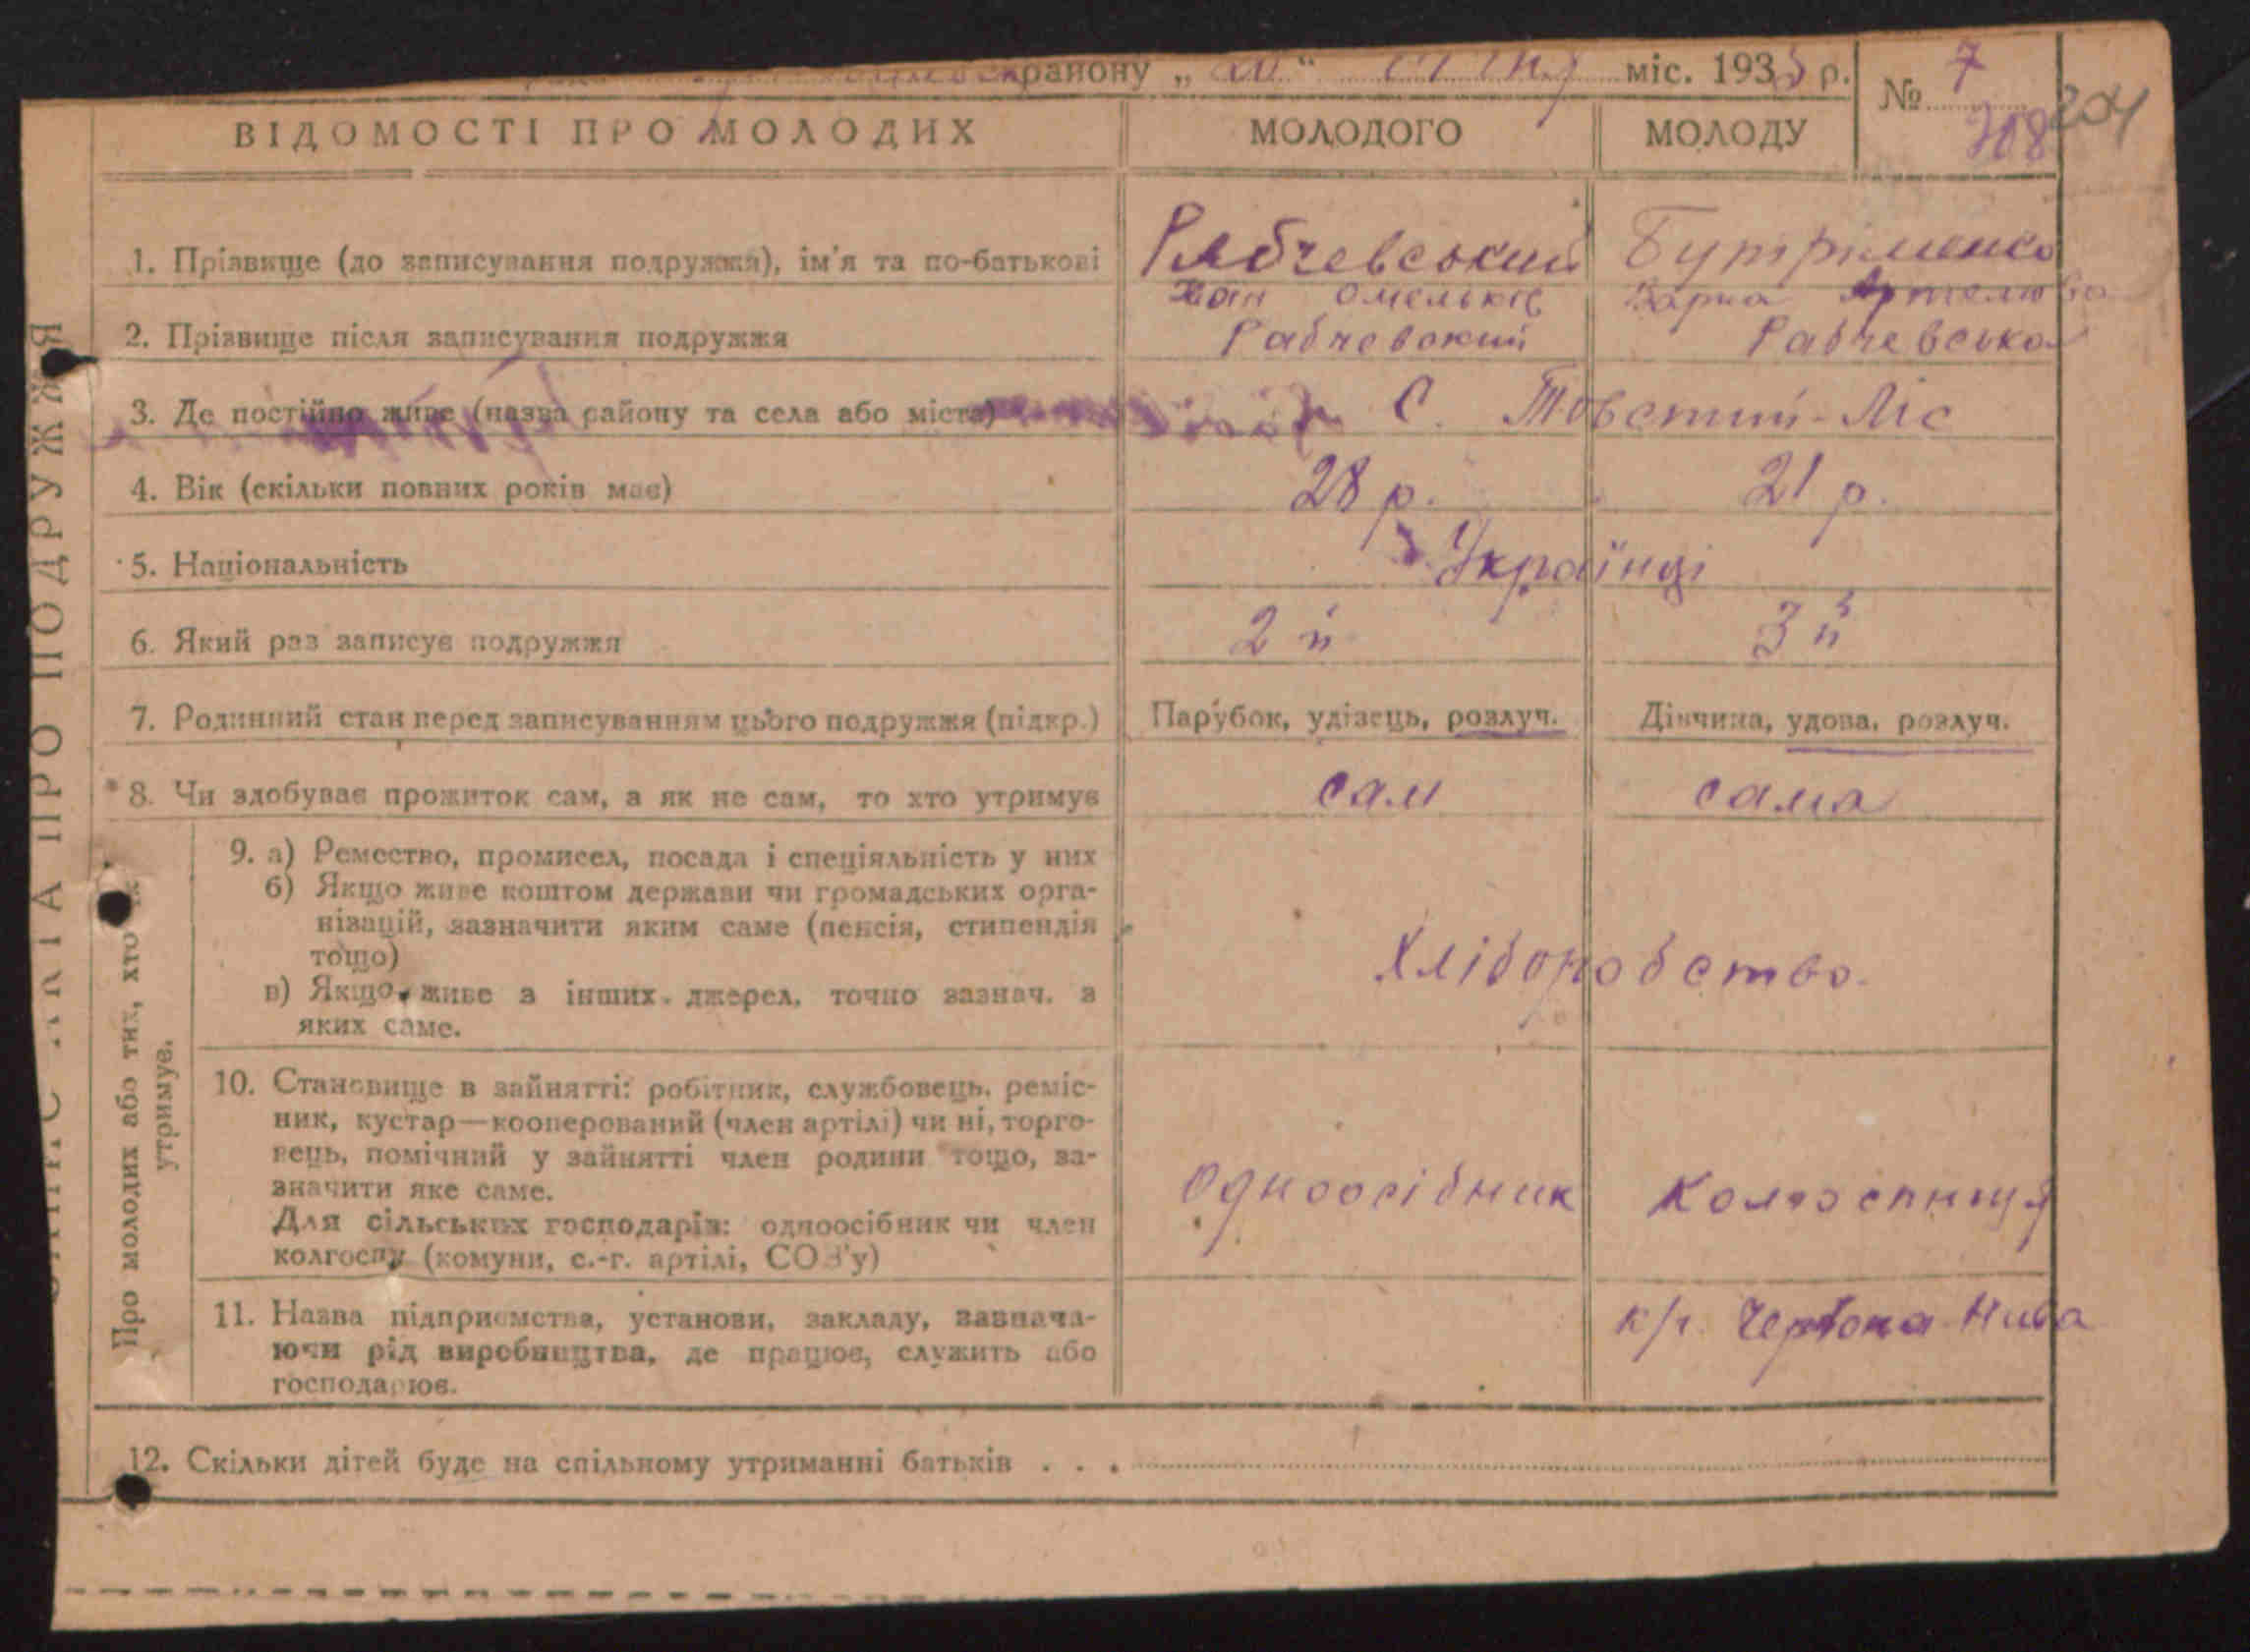 району „ 20 “ міс. 1935 р.
№ 7
204
708
ВІДОМОСТІ ПРО МОЛОДИХ МОЛОДОГО МОЛОДУ
1. Прізвище (до записування подружжя), ім'я та по-батькові Рябчевський Бутріменко
Іван Омельков Варка Артемова
2. Прізвище після записування подружжя Рабчевский Рабчевська
3. Де постійно живе (назва району та села або міста) С. Товстий-Ліс
4. Вік (скільки повних років має) 28 р. 21 р.
5. Національність Українці
6. Який раз записує подружжя 2 й 3 й
7. Родинний стан перед записуванням цього подружжя (підкр.) Парубок, удівець, розлуч. Дівчина, удова, розлуч.
8. Чи здобуває прожиток сам, а як не сам, то хто утримує сам сама
9. а) Ремество, промисел, посада і спеціяльність у них
б) Якщо живе коштом держави чи громадських орга-
нізацій, зазначити яким саме (пенсія, стипендія
тощо) Хліборобство.
в) Якщо живе з інших джерел, точно зазнач. з
яких саме.
10. Становище в зайнятті: робітник, службовець, реміс-
ник, кустар—кооперований (член артілі) чи ні, торго-
вець, помічний у зайнятті член родини тощо, за-
значити яке саме. Одноосібник Колгоспниця
Для сільських господарів: одноосібник чи член
колгоспу (комуни, с.-г. артілі, СОЗ'у)
11. Назва підприємства, установи, закладу, зазнача-
ючи рід виробництва, де працює, служить або к/г. Червона Нива
господарює.
12. Скільки дітей буде на спільному утриманні батьків . . .
Про молодих або тих, хто їх
утримує.
ЗАПИС АКТА ПРО ПОДРУЖЖЯ